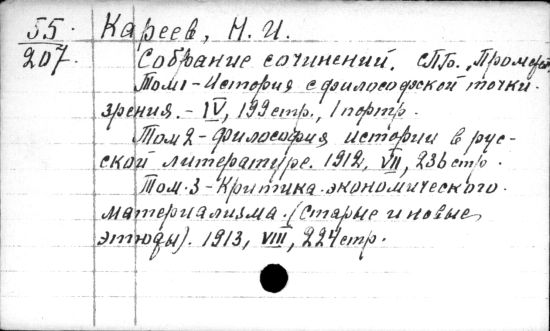 55. Кареев, Н. И.
207. Собрание сочинений. СПб. „Прометей
Том 1 - История с философской точки.
зрения. - IV, 199 стр., 1 портр.
Том 2 - философия истории в рус-
ской литературе. 1912, VII, 236 стр.
Том. 3 - Критика. экономического.
материализма. (Старые и новые
этюды). 1913, VIII, 224 стр.